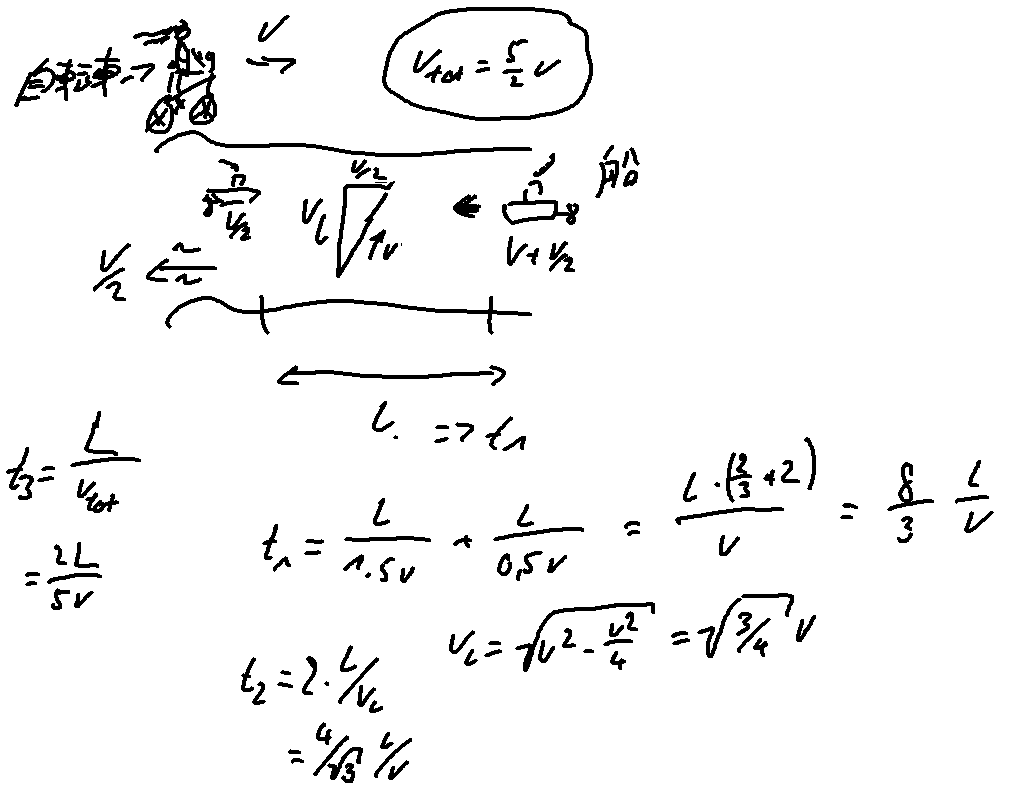 自転車→ V →
V_tot = 5/2 v
船
V/2
V/2
V_L
↑v
V + V/2
V/2
L. => t₁
t₃ = L/V_tot
= 2L/5v
t₁ = L/1.5v + L/0,5v = L·(2/3+2)/v = 8/3 L/v
V_L = √(v² - v²/4) = √(3/4) v
t₂ = 2·L/V_L
= 4/√3 L/v